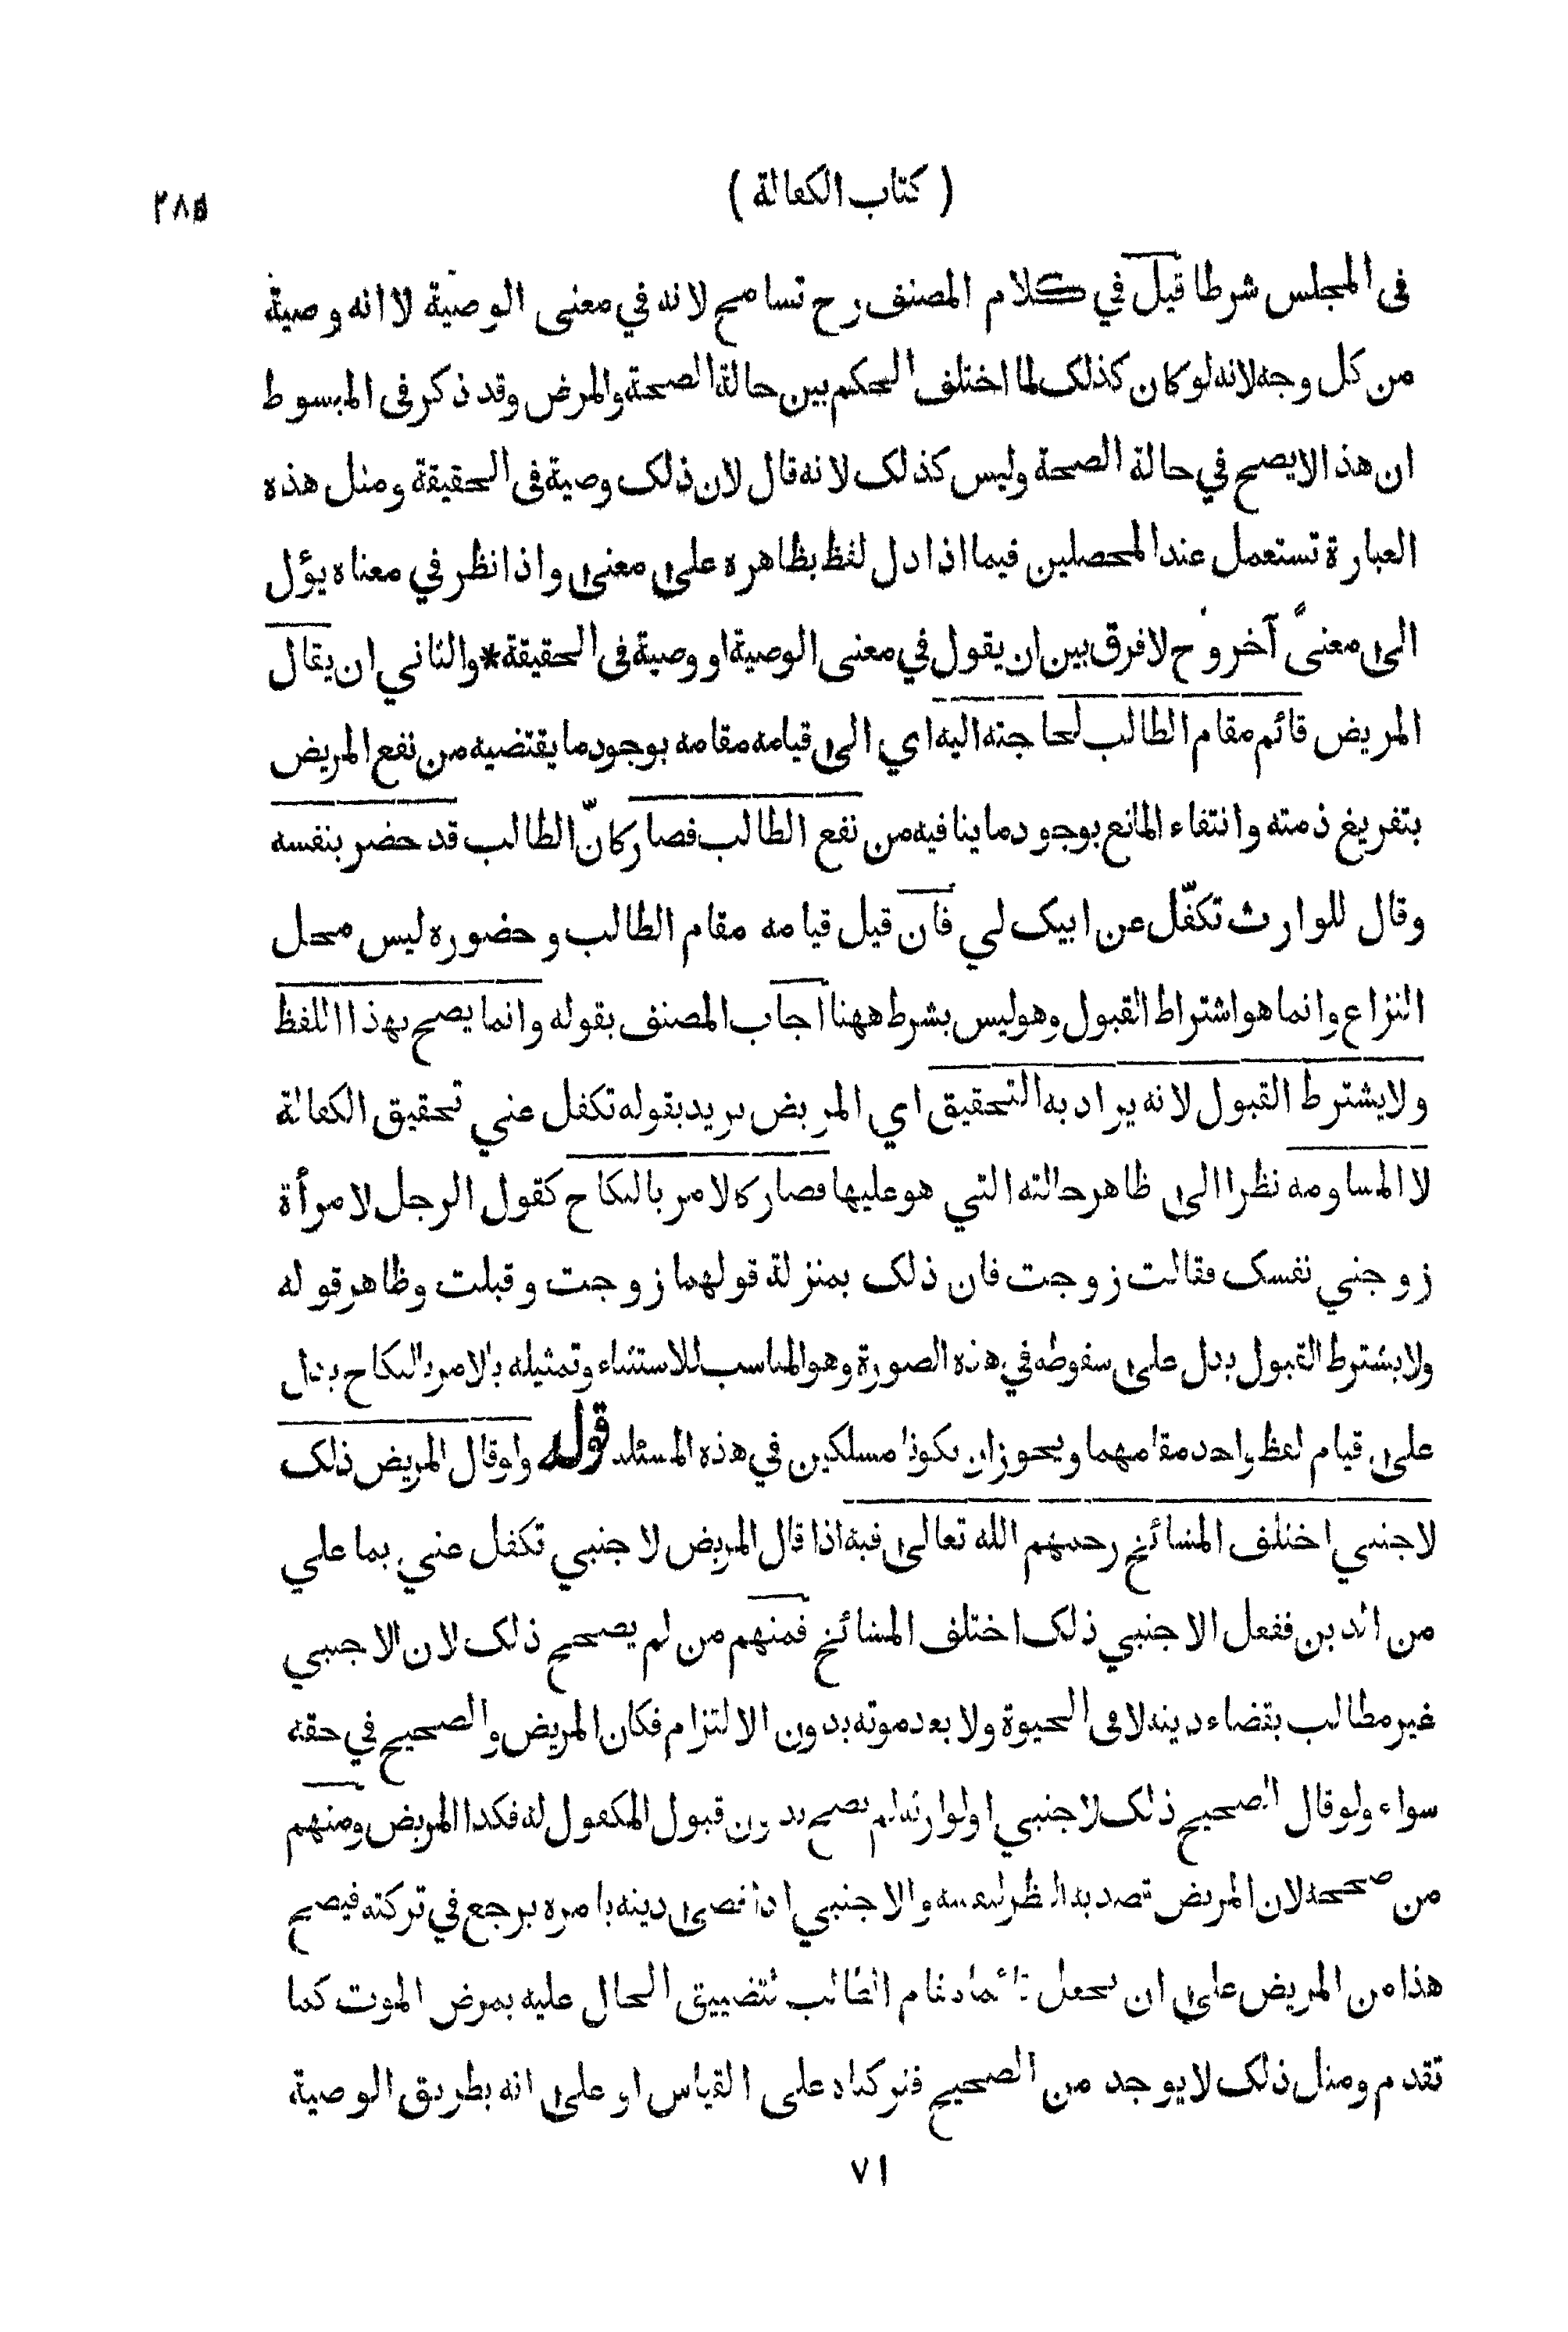 ( كتاب الكفالة )
٢٨٥
فى المجلس شرطا قيل في كلام المصنف رح تسامح لانه في معنى الوصية لا انه وصية
من كل وجه لانه لو كان كذلك لما اختلف الحكم بين حالة الصحة والمرض وقد ذكر فى المبسوط
ان هذا لا يصح في حالة الصحة وليس كذلك لانه قال لان ذلك وصية فى الحقيقة ومثل هذه
العبارة تستعمل عند المحصلين فيما اذا دل لفظ بظاهره على معنى واذا نظر في معناه يؤل
الى معنىً آخر وح لا فرق بين ان يقول في معنى الوصية او وصية فى الحقيقة * والثاني ان يقال
المريض قائم مقام الطالب لحاجته اليه اي الى قيامه مقامه بوجود ما يقتضيه من نفع المريض
بتفريغ ذمته وانتفاء المانع بوجود ما ينافيه من نفع الطالب فصار كانّ الطالب قد حضر بنفسه
وقال للوارث تكفّل عن ابيك لي فان قيل قيامه مقام الطالب وحضوره ليس محل
النزاع وانما هو اشتراط القبول وهو ليس بشرط ههنا اجاب المصنف بقوله وانما يصح بهذا اللفظ
ولا يشترط القبول لانه يراد به التحقيق اي المريض يريد بقوله تكفل عني تحقيق الكفالة
لا المساومه نظرا الى ظاهر حالته التي هو عليها فصار كالامر بالنكاح كقول الرجل لامرأة
زوجني نفسك فقالت زوجت فان ذلك بمنزلة قولهما زوجت وقبلت وظاهر قوله
ولا يشترط القبول يدل على سقوطه في هذه الصورة وهو المناسب للاستثناء وتمثيله بالامر بالنكاح يدل
على قيام لفظ واحد مقامهما ويجوز ان يكونا مسلكين في هذه المسئلة قوله ولو قال المريض ذلك
لاجنبي اختلف المشائخ رحمهم الله تعالى فيه اذا قال المريض لاجنبي تكفل عني بما علي
من الدين ففعل الاجنبي ذلك اختلف المشائخ فمنهم من لم يصحح ذلك لان الاجنبي
غير مطالب بقضاء دينه لا فى الحيوة ولا بعد موته بدون الالتزام فكان المريض والصحيح في حقه
سواء ولو قال الصحيح ذلك لاجنبي او لوارثه لم يصح بدون قبول المكفول له فكذا المريض ومنهم
من صححه لان المريض قصد به النظر لنفسه والاجنبي اذا قضى دينه بامره يرجع في تركته فيصح
هذا من المريض على ان يجعل قائما مقام الطالب لتضييق الحال عليه بمرض الموت كما
تقدم ومثل ذلك لا يوجد من الصحيح فتركناه على القياس او على انه بطريق الوصية
٧١